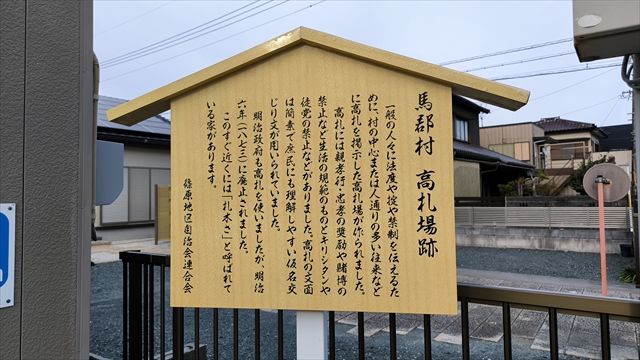 馬郡村 高札場跡
一般の人々に法度や掟や禁制を伝えるた
めに、村の中心または人通りの多い往来など
に高札を掲示した高札場が作られました。
高札には親孝行・忠孝の奨励や賭博の
禁止など生活の規範のものとキリシタンや
徒党の禁止などがありました。高札の文面
は簡素で庶民にも理解しやすい仮名交
じり文が用いられていました。
明治政府も高札を使いましたが、明治
六年（一八七三）に廃止されました。
このすぐ近くには「札木さ」と呼ばれて
いる家があります。
篠原地区自治会連合会